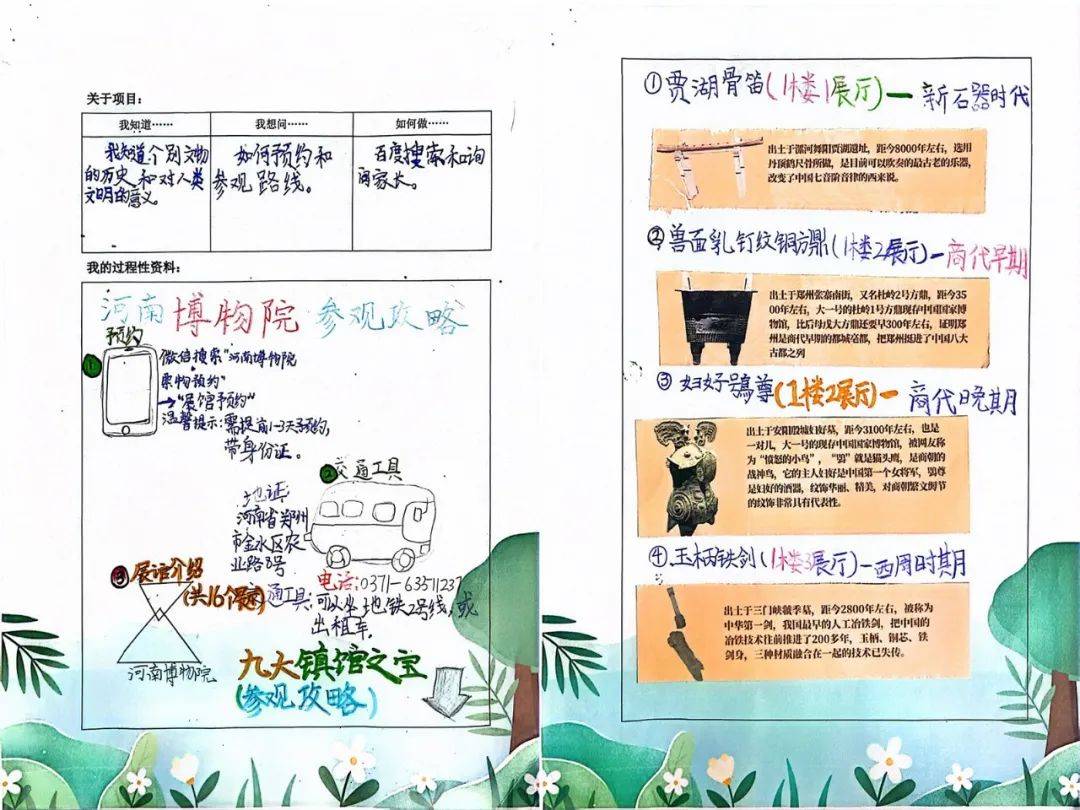 关于项目:
我知道……
我想问……
如何做……
我知道个别文物
的历史和对人类
文明的意义。
如何预约和
参观路线。
百度搜索和询
问家长。
我的过程性资料:
河南博物院参观攻略
预约
①
微信搜索"河南博物院
票物预约"
→"展馆预约"
温馨提示:需提前1-3天预约,
带身份证。
②交通工具
地址:
河南省郑州
市金水区农
业路8号
电话:0371-63511237
交通工具:可以坐地铁2号线,或
出租车.
③展馆介绍
(共16个展厅)
河南博物院
九大镇馆之宝
(参观攻略)
①贾湖骨笛(1楼1展厅)一新石器时代
出土于漯河舞阳贾湖遗址,距今8000年左右,选用
丹顶鹤尺骨所做,是目前可以吹奏的最古老的乐器,
改变了中国七音阶音律的西来说。
②兽面乳钉纹铜方鼎(1楼2展厅)一商代早期
出土于郑州张寨南街,又名杜岭2号方鼎,距今3500
年左右,大一号的杜岭1号方鼎现存中国国家博
物馆,比后母戊大方鼎还要早300年左右,证明郑
州是商代早期的都城亳都,把郑州挺进了中国八大
古都之列
③妇好鸮尊(1楼2展厅)一商代晚期
出土于安阳殷墟妇好墓,距今3100年左右,也是
一对儿,大一号的现存中国国家博物馆,被网友称
为"愤怒的小鸟","鸮"就是猫头鹰,是商朝的
战神鸟,它的主人妇好是中国第一个女将军,鸮尊
是妇好的酒器,纹饰华丽、精美,对商朝繁文缛节
的纹饰非常具有代表性。
④玉柄铁剑(1楼3展厅)一西周时期
出土于三门峡虢季墓,距今2800年左右,被称为
中华第一剑,我国最早的人工冶铁剑,把中国的
冶铁技术往前推进了200多年,玉柄,铜芯、铁
剑身,三种材质融合在一起的技术已失传。